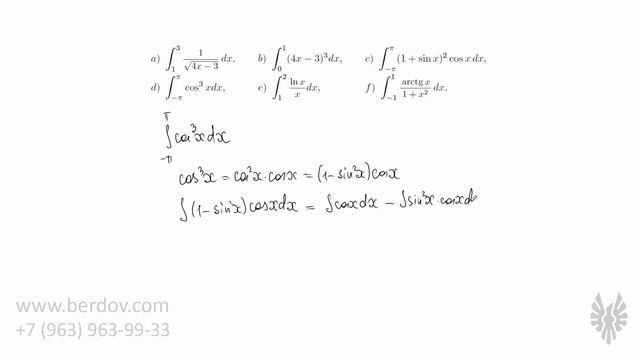 a) ∫₁³ 1/√(4x − 3) dx, b) ∫₀¹ (4x − 3)³dx, c) ∫₋π^π (1 + sin x)² cos x dx,
d) ∫₋π^π cos³ xdx, e) ∫₁² ln x/x dx, f) ∫₋₁¹ arctg x/(1 + x²) dx.
∫₋π^π cos³x dx
cos³x = cos²x · cosx = (1 − sin²x) cosx
∫ (1 − sin²x) cosx dx = ∫ cosx dx − ∫ sin²x · cosx d
www.berdov.com
+7 (963) 963-99-33